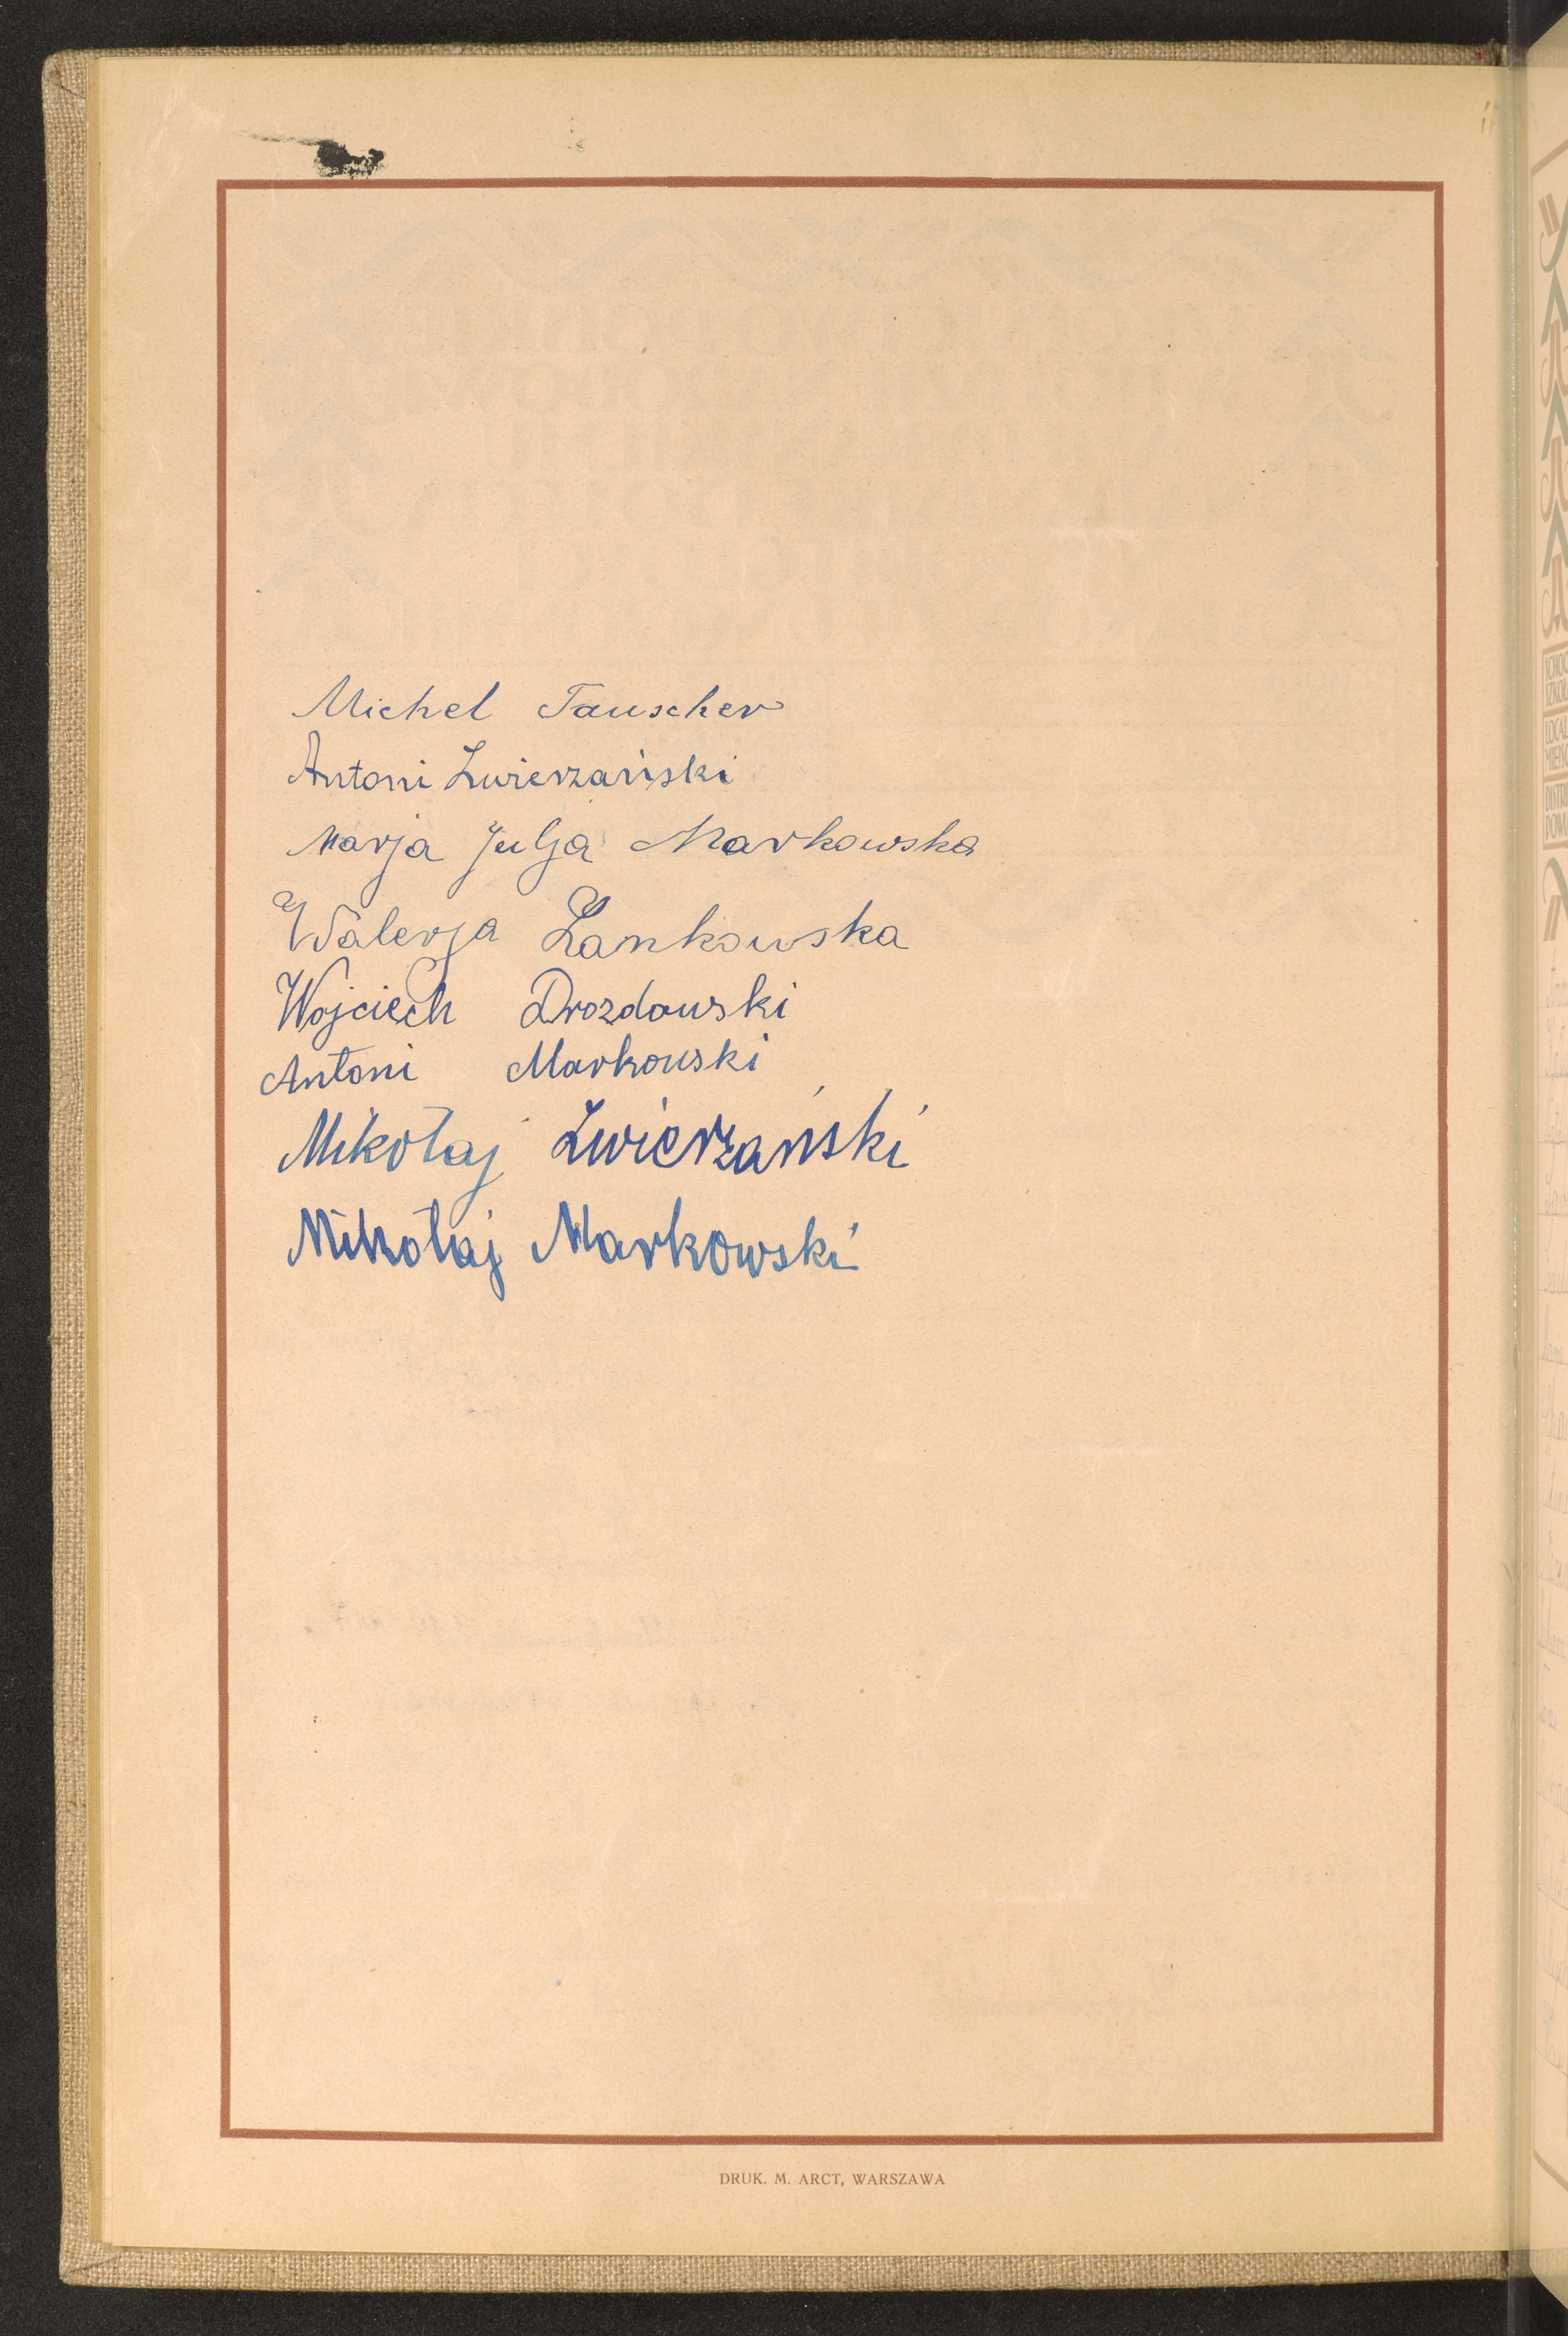 Michel Tauscher
Antoni Zwierzański
Marja Julja Markowska
Walerja Zankowska
Wojciech Drozdowski
Antoni Markowski
Mikołaj Zwierzański
Mikołaj Markowski
DRUK. M. ARCT, WARSZAWA